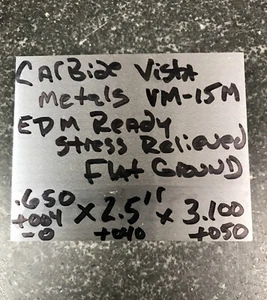 Carbide Vista
Metals VM-15M
EDM Ready
Stress Relieved
Flat Ground
.650 x 2.5" x 3.100
+004 +040 +050
-0